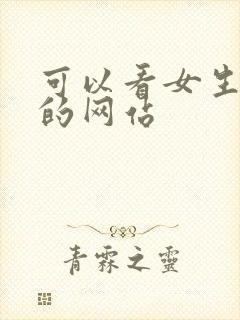 可以看女生
的网站
青霖之靈